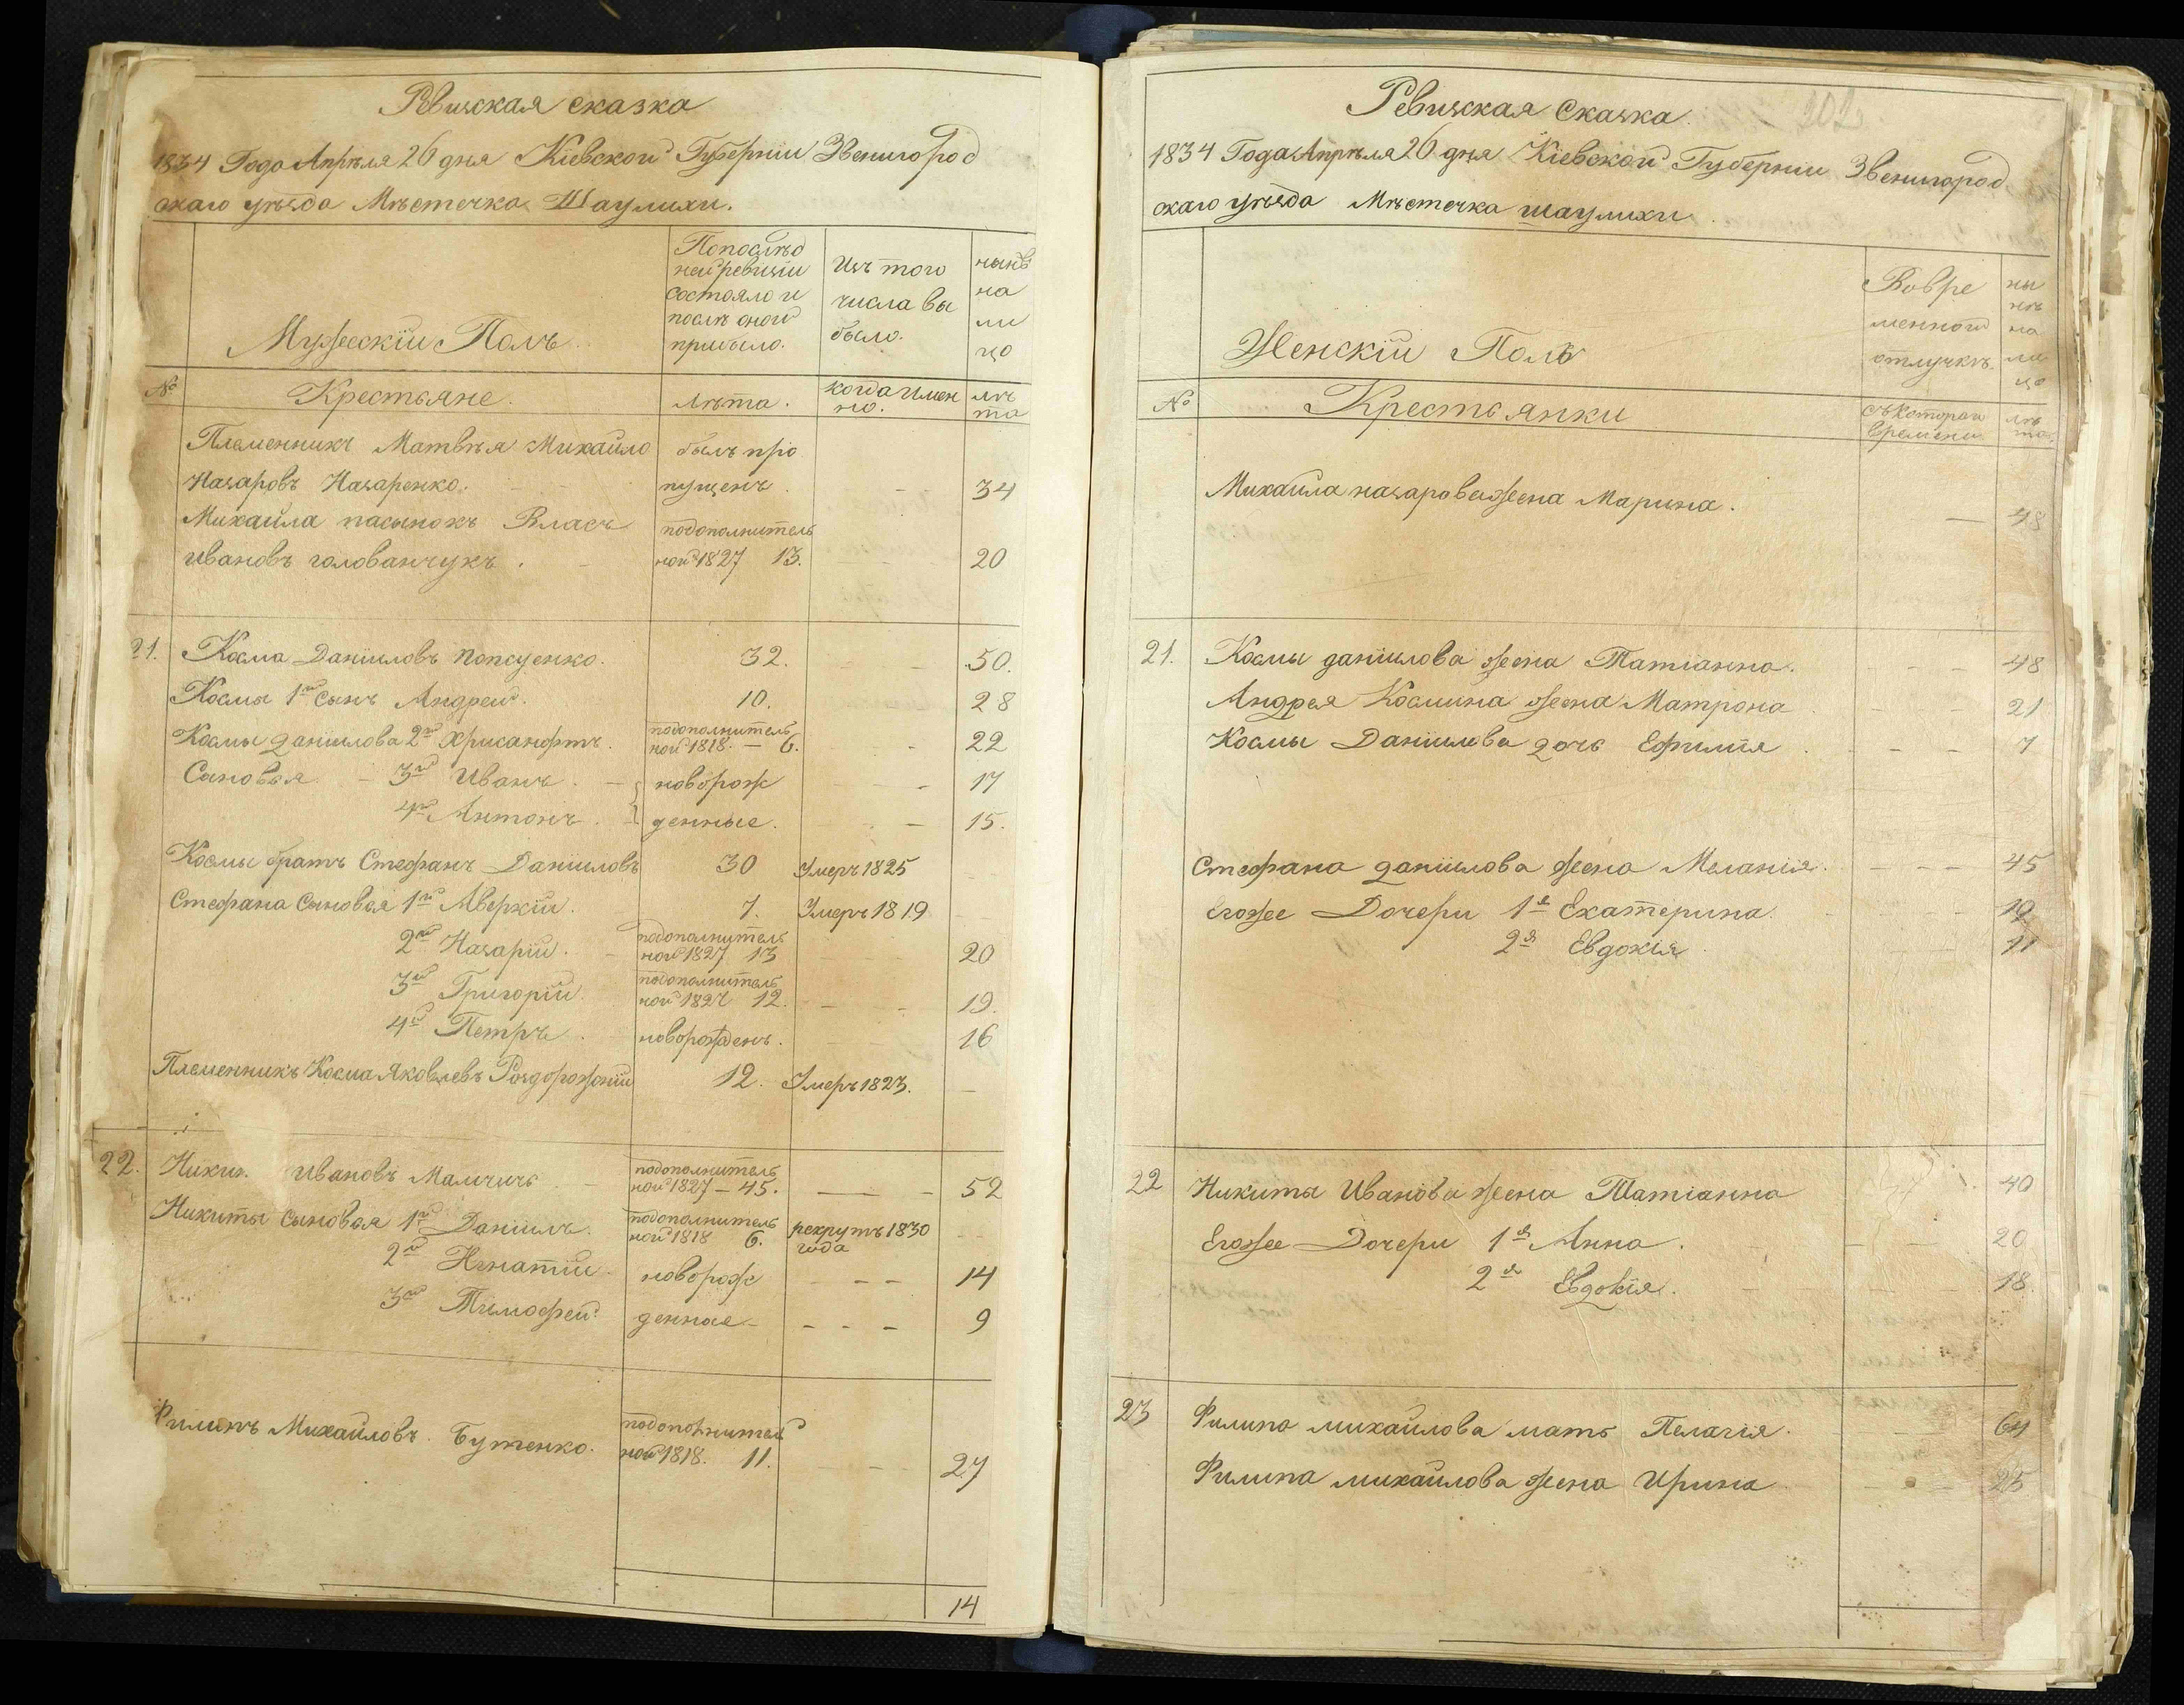 Ревизская сказка
1834 Года Апреля 26 дня Кіевской Губерніи Звенигород
скаго уѣзда Мѣстечка Шаулихи.
Мужескій Полъ.
Попослѣд
ней ревизіи
состояло и
послѣ оной
прибыло.
Изъ того
числа вы
было.
нынѣ
на
ли
цо
№
Крестьяне.
лѣта.
когда имен
но.
лѣ
та
Племенникъ Матвѣя Михайло был про
Назаровъ Назаренко. пущенъ. 34
Михайла пасынокъ Власъ подополнитель
Ивановъ голованчукъ. ной 1827 13. 20
21. Косма Даниловъ Попсуенко. 32. 50.
Космы 1й сынъ Андрей. 10. 28
подополнитель
Космы данилова 2й Хрисанфтъ. ной 1818. – 6. 22
Сыновья – 3й Иванъ. – новорож 17
4й Антонъ. – денные. 15.
Космы братъ Стефанъ Даніиловъ 30 Умеръ 1825
Стефана сыновья 1й Аверкій. 7. Умеръ 1819
подополнитель
2й Назарій. ной 1827 13 20
подополнитель
3й Григорій. ной 1827 12. 19.
4й Петръ. новорожденъ. 16
Племенникъ Косма Яковлевъ Роздорожній 12. Умеръ 1823. –
подополнитель
22. Ники Ивановъ Мамчичъ ной 1827 – 45. 52
подополнитель
Никиты сыновья 1й Даниилъ. ной 1818 6. рекрутъ 1830
года
2й Игнатій новорож 14
3й Тимофей. денные – 9
подополнител
Филипъ Михайловъ Бутенко. ной 1818. 11. 27
14
Ревизская Сказка.
202
1834 Года Апрѣля 26 дня Кіевской Губерніи Звенигород
скаго уѣзда Мѣстечка шаулихи.
Женскій Полъ
Вовре
менной
отлучкѣ.
ны
нѣ
на
ли
цо
№
Крестьянки
съ которои
времени
лѣ
та.
Михайла назарова жена Марина. – 48
21. Космы даніилова жена Татіанна. 48
Андрея Космина жена Матрона 21
Космы Даніилова дочь Ефимія 7
Стефана даніилова жена Меланія. 45
Егоже Дочери 1я Екатерина. 19
2я Евдокія 11
22 Никиты Иванова жена Татіанна 40
Егоже Дочери 1я Анна. 20
2я Евдокія. 18.
23 Филипа михайлова мать Пелагія. 64
Филипа михайлова жена Ирина 25